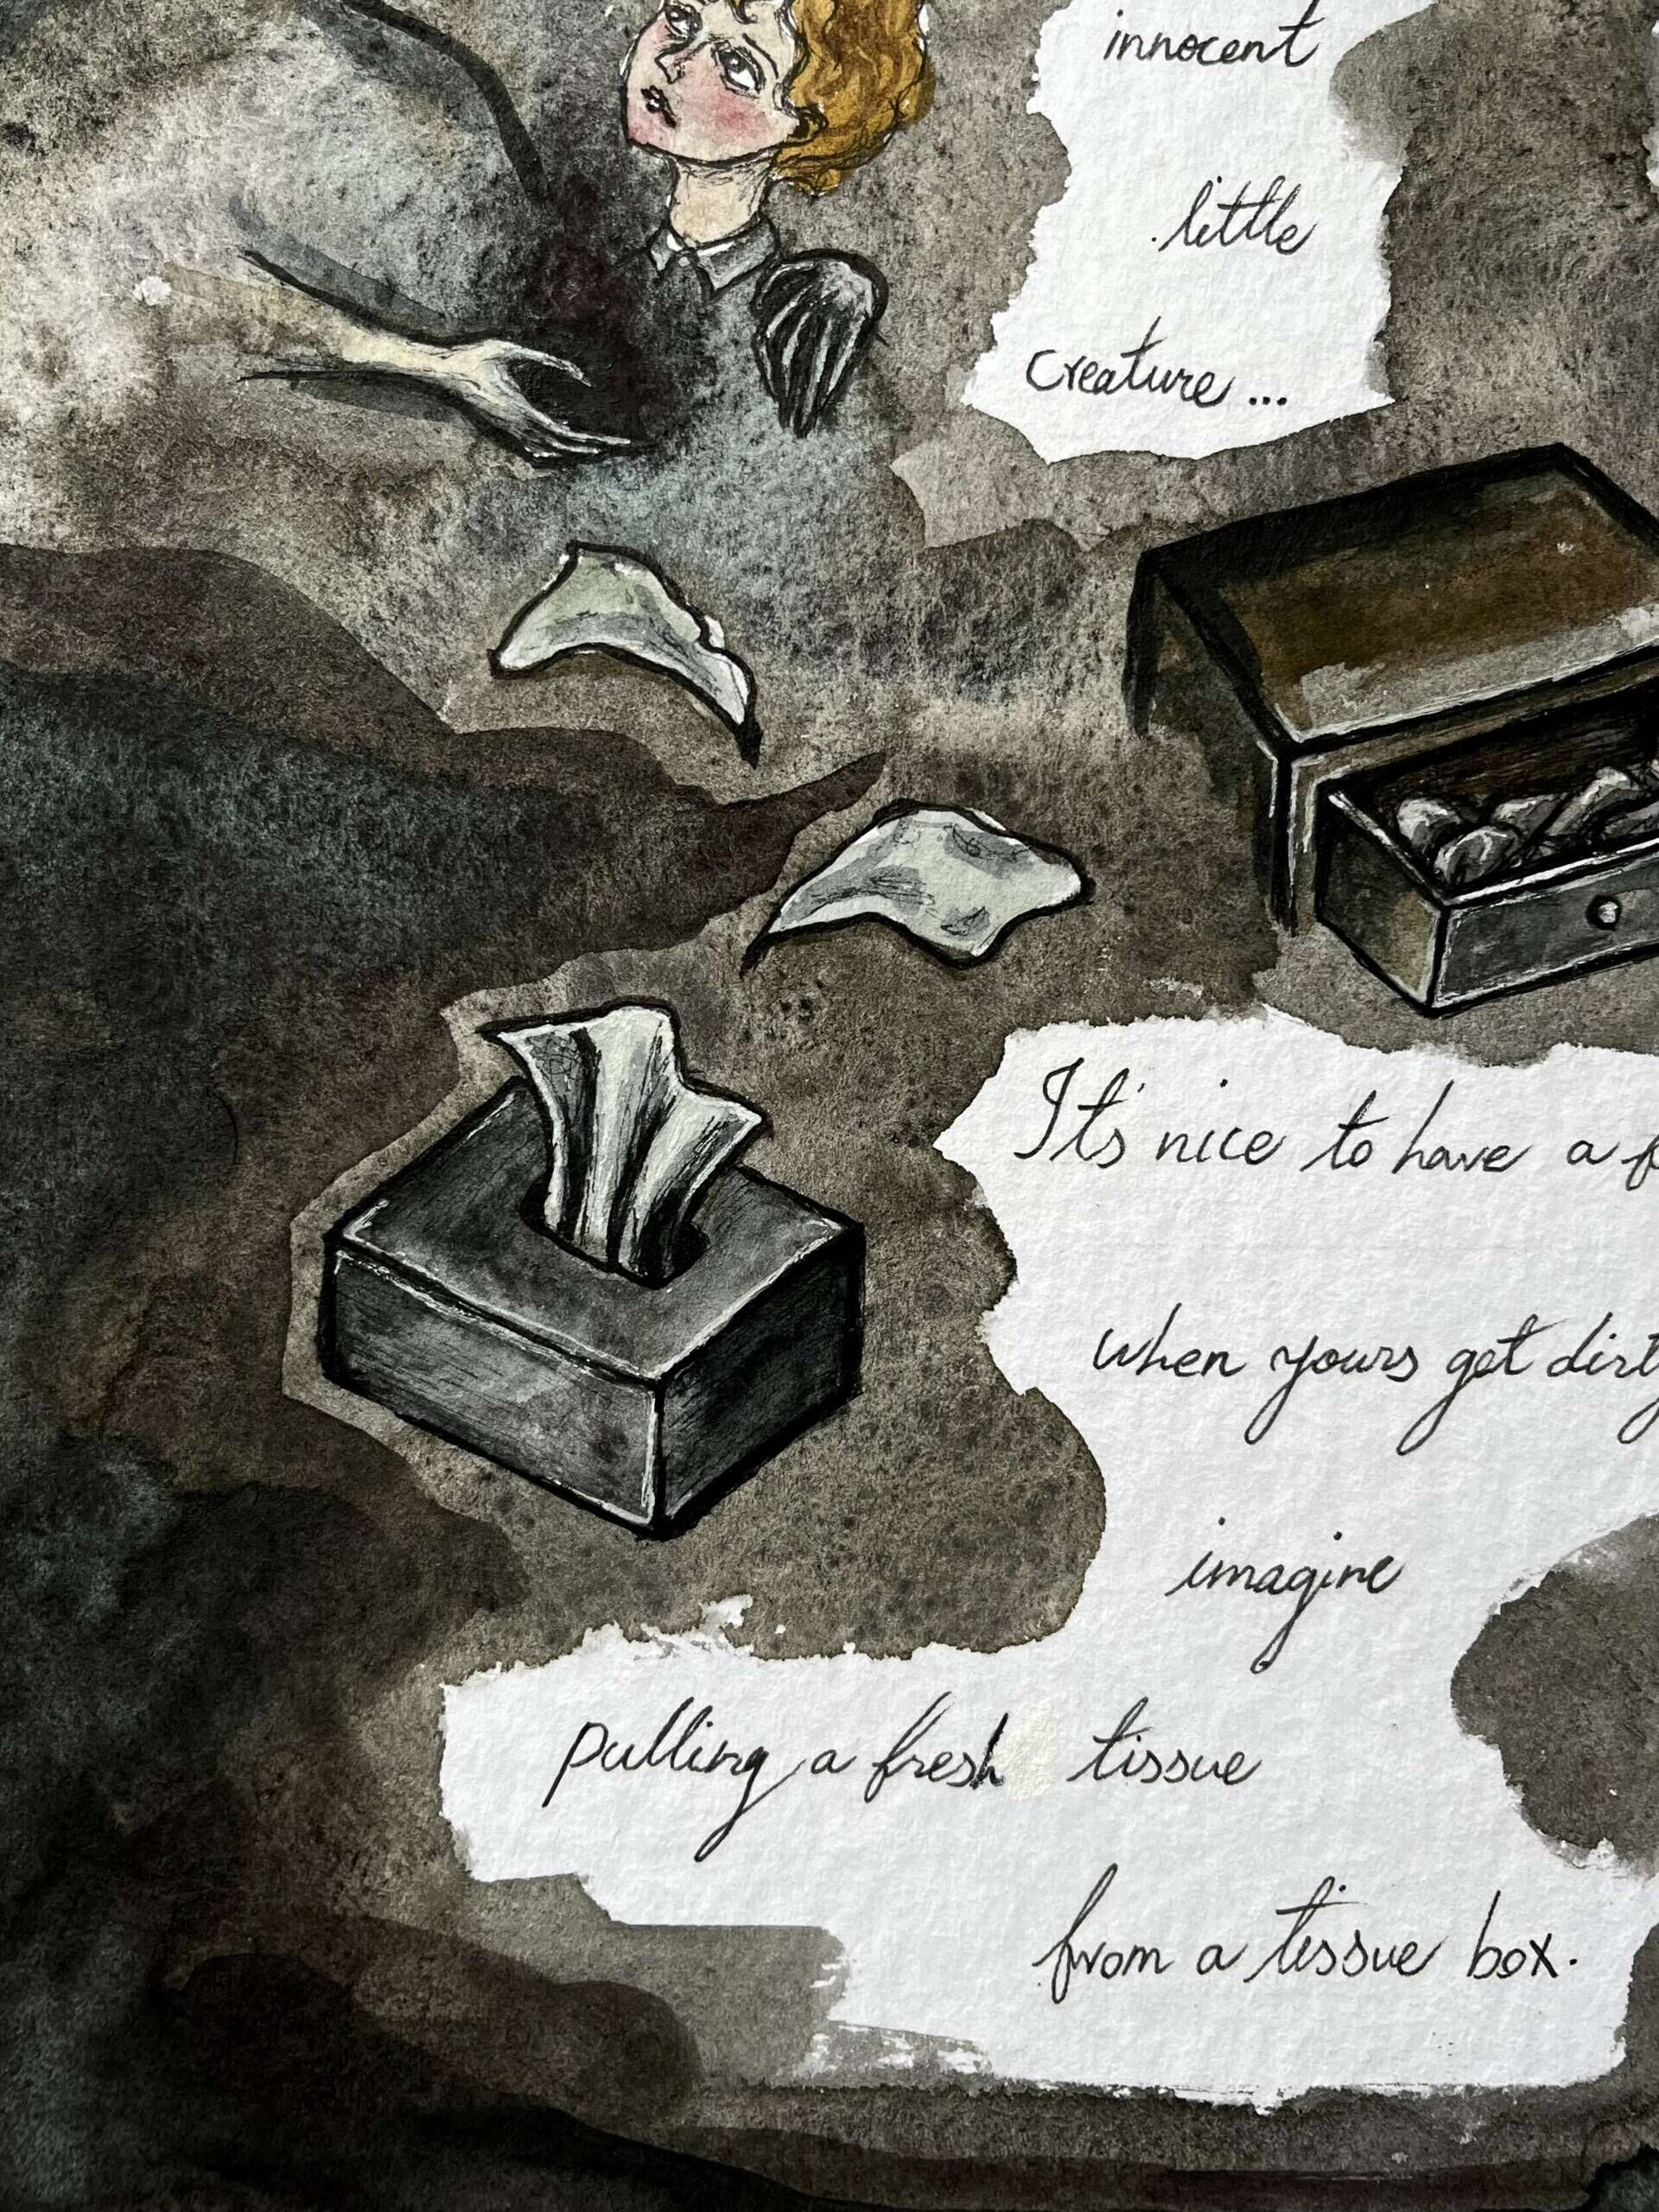 innocent
little
creature...
It's nice to have a
when yours get dirty
imagine
pulling a fresh tissue
from a tissue box.